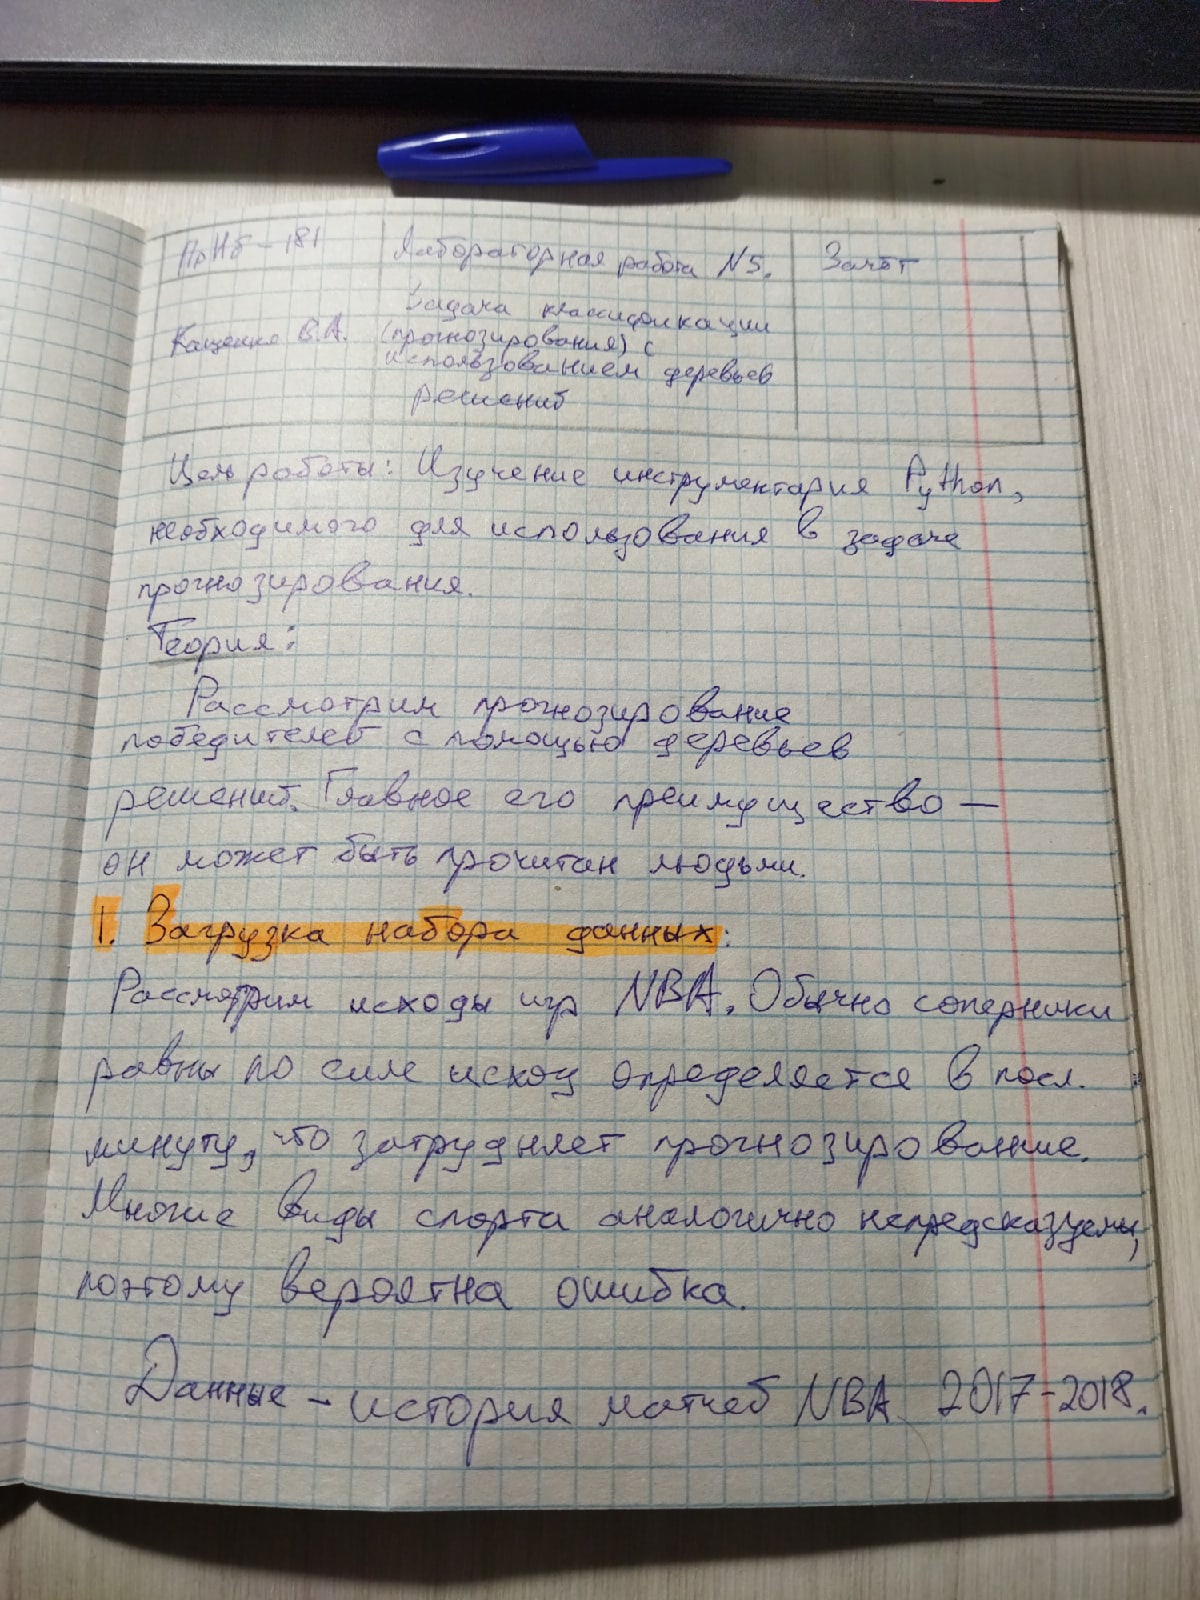 ПрИб-181
Лабораторная работа №5.
Зачёт
Кащенко В.А.
Задача классификации
(прогнозирования) с
использованием деревьев
решений
Цель работы: Изучение инструментария Python,
необходимого для использования в задаче
прогнозирования.
Теория:
Рассмотрим прогнозирование
победителей с помощью деревьев
решений. Главное его преимущество —
он может быть прочитан людьми.
1. Загрузка набора данных:
Рассмотрим исходы игр NBA. Обычно соперники
равны по силе исход определяется в посл.
минуту, что затрудняет прогнозирование.
Многие виды спорта аналогично непредсказуемы,
поэтому вероятна ошибка.
Данные – история матчей NBA 2017-2018.